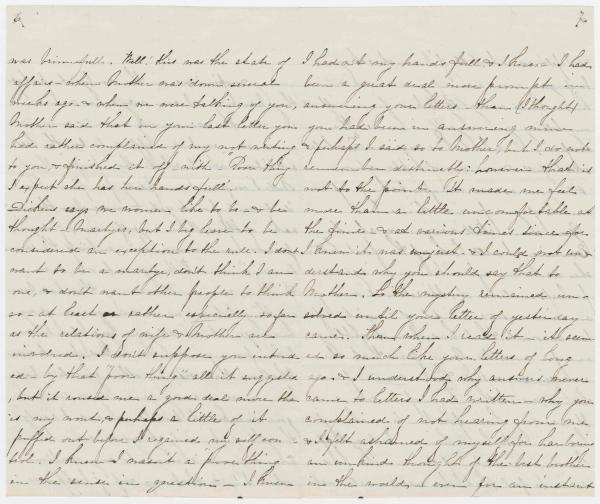 6
was brimfull. Well: this was the state of
affairs when Mother was down several
weeks ago & when we were talking of you,
Mother said that in your last letter you
had rather complained of my not writing
to you & finished it off with "Poor thing
I expect she has her hands full".
Dickens says we women like to be & be
thought Martyrs, but I beg leave to be
considered an exception to the rule. I don't
want to be a martyr, don't think I am
one, & don't want other people to think
so at least or rather especially so far
as the relations of wife & Mother are
involved. I don't suppose you intend
ed by that "poor thing" all it suggested
, but it roused me a good deal more than
is my wont, & perhaps a little of it
puffed out before I regained my self con-
trol. I knew I wasn't a "poor thing"
in the sense in question – I knew
7
I had not my hands full & I knew I had
been a great deal more prompt in
answering your letters than (I thought)
you had been in answering mine
& perhaps I said so to Mother, but I do not
remember distinctly: however that is
not to the point. It made me feel
more than a little uncomfortable at
the time & at various times since for
I knew it was unjust & I could not un-
derstand why you should say that to
Mother. So the mystery remained un-
solved until your letter of yesterday
came. Then when I read it – it seem
ed so much like your letters of long
ago & I understood why answers never
came to letters I had written – why you
complained of not hearing from me
& I felt ashamed of myself for harboring
an unkind thought of the best brother
in the world even for an instant